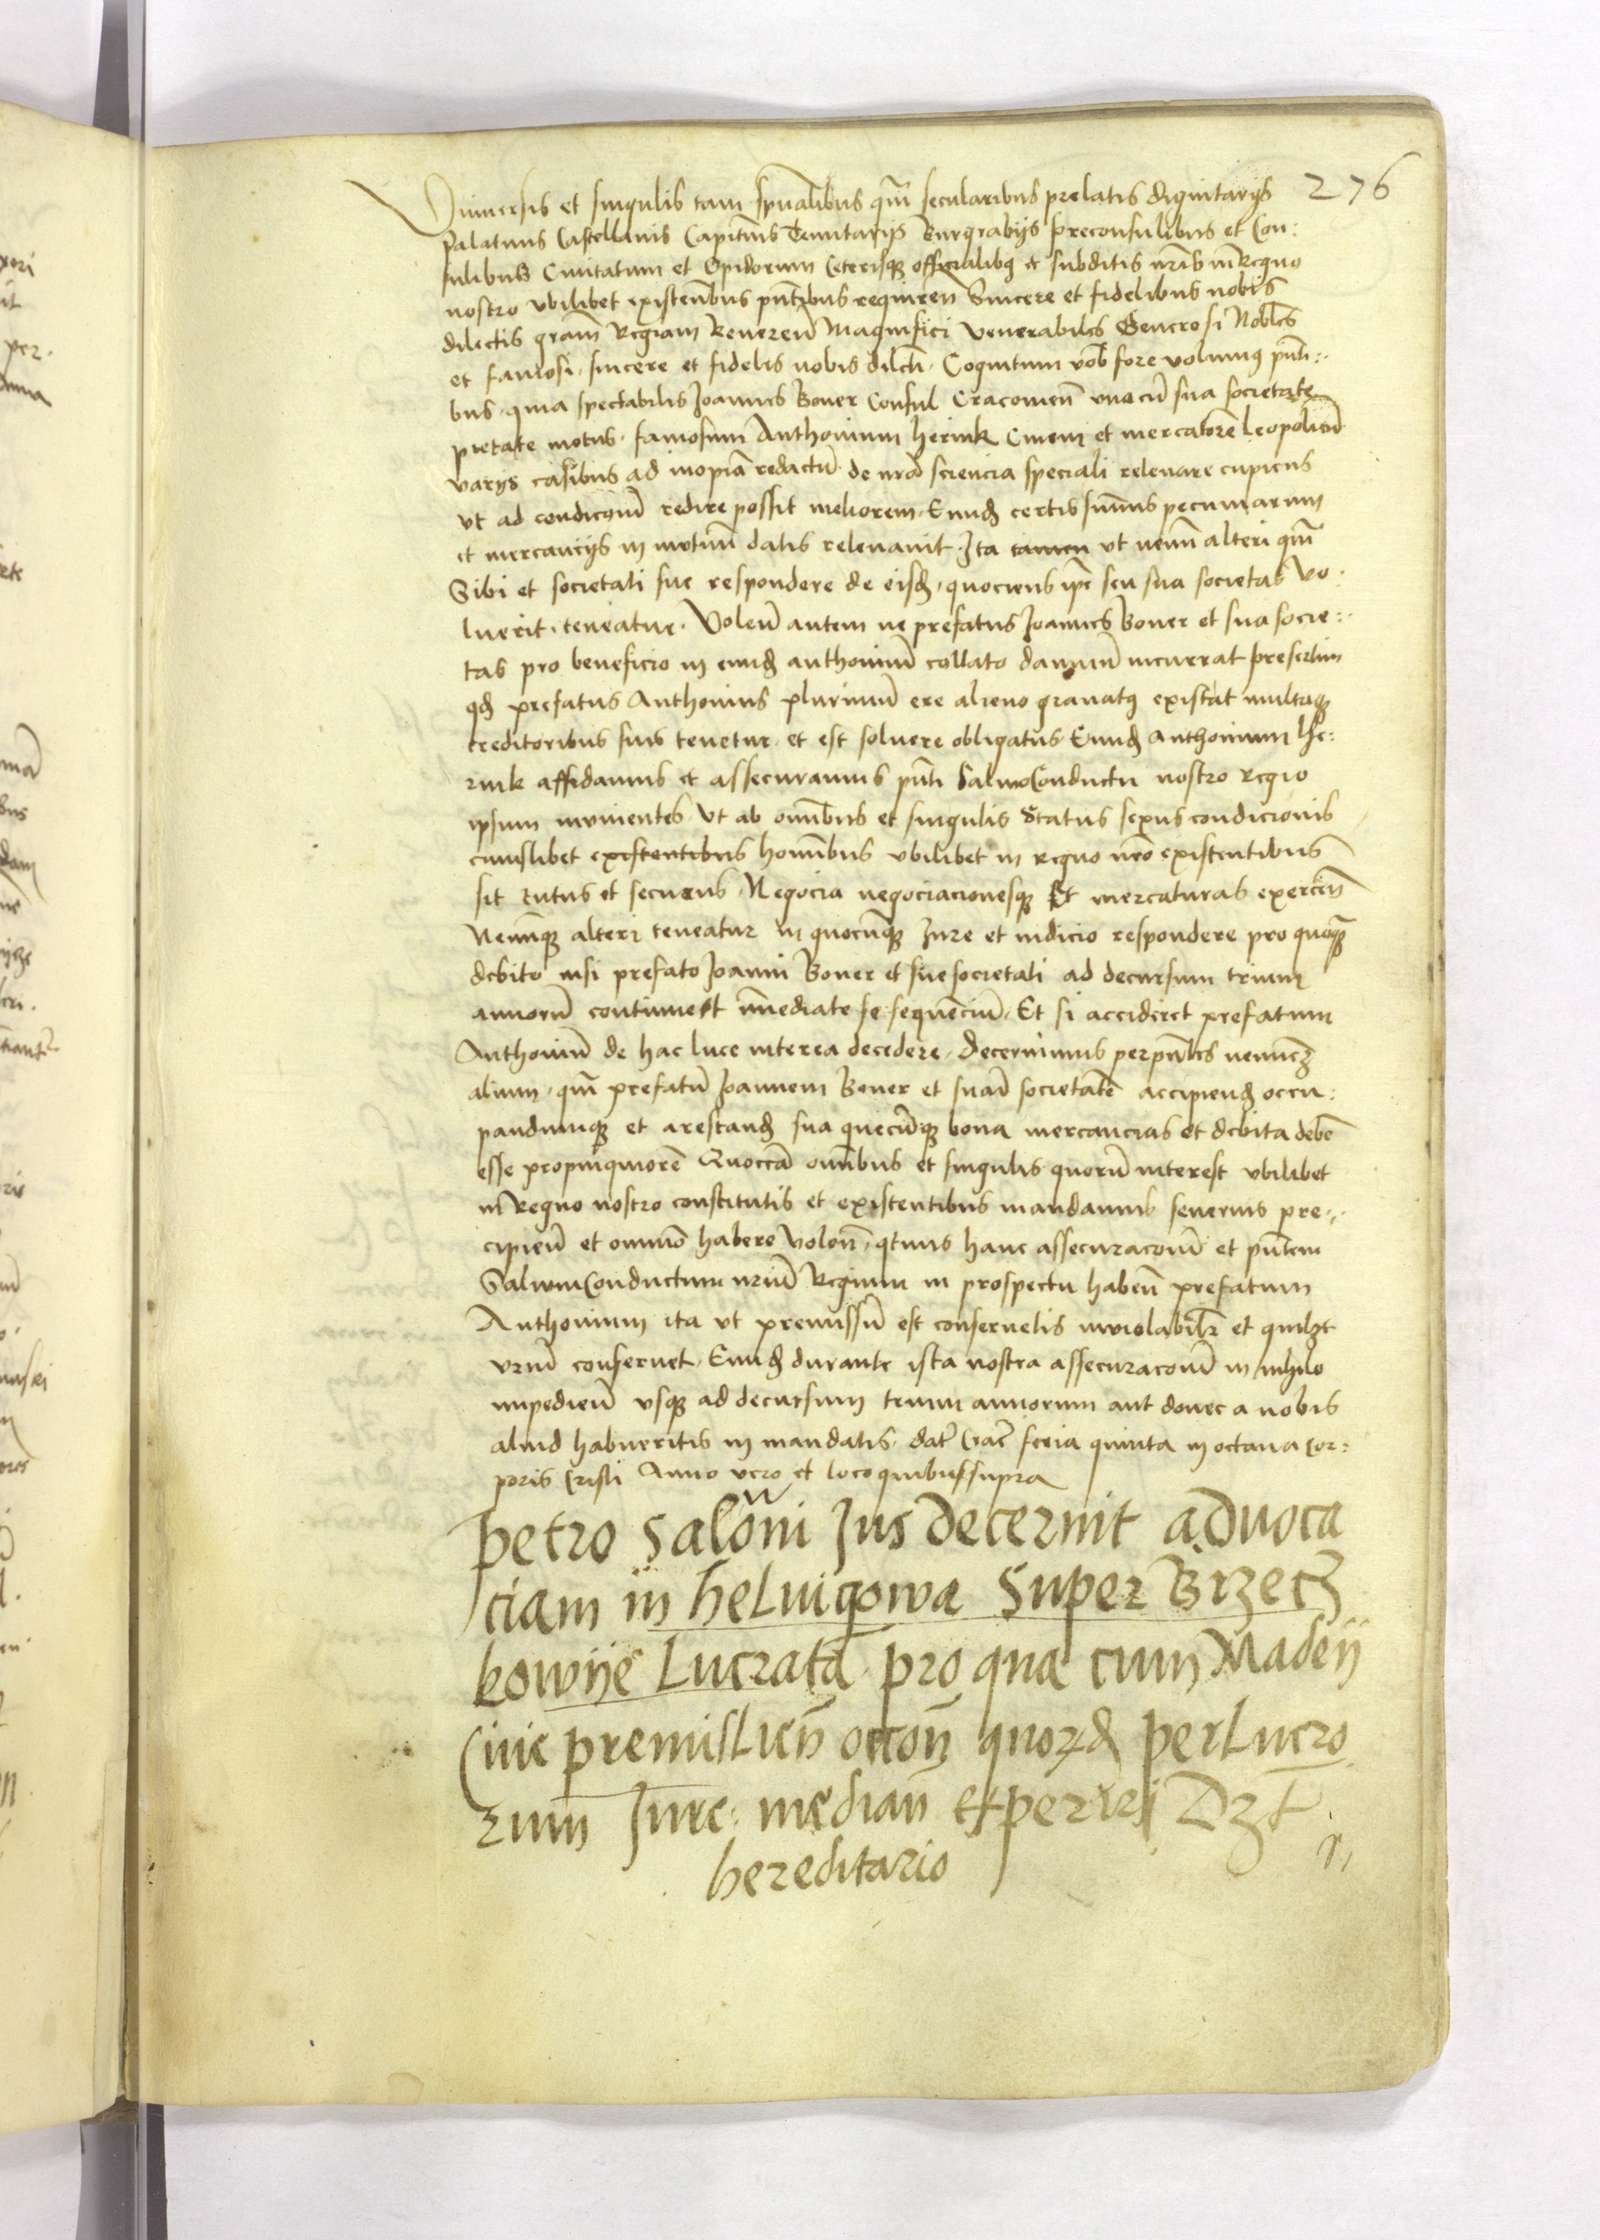 276
Vniuersis et singulis tam spualibus qm secularibus prelatis dignitarijs
Palatinis Castellanis Capitneis Tenutarijs Burgrabijs preconsulibus et Con:
sulibus Ciuitatum et Opidorum Ceterisque officialibus et subditis nris in Regno
nostro vbilibet existentibus pntibus requiren Sincere et fidelibus nobis
dilectis gram Regiam Reueren Magnifici Venerabiles Generosi Nobiles
et famosi sincere et fidelis nobis dilcti. Cognitum vob fore volumus pnti:
bus. quia spectabilis Joannes Boner Consul Cracouien vnacu sua societate
pietate motus. famosum Anthonium herink Ciuem et mercatore Leopolien
varijs casibus ad inopia redactu de nra sciencia speciali releuare cupiens
vt ad condicionem redire possit meliorem. Eund certis sumis pecuniarum
et mercancijs in mutuu datis releuauit. Ita tamen vt nemi alteri qm
Sibi et societati sue respondere de eisd. quociens ipe seu sua societas vo:
luerit. teneatur. Volen autem ne prefatus Joannes Boner et sua socie:
tas pro beneficio in eund anthoniu collato damnu incurrat presertim
qd prefatus Anthonius plurimu ere alieno grauatus existat multisque
creditoribus suis tenetur. et est soluere obligatus Eund anthonium he:
rink affidamus et assecuramus pnti Saluoconductu nostro regio
ipsum munientes. Vt ab omnibus et singulis Status sexus condicionis
cuiuslibet existentibus hominibus vbilibet in regno nro existentibus
sit tutus et securus. Negocia negociacionesque Et mercaturas exercen
Neminique alteri teneatur in quocunque Jure et iudicio respondere pro quoque
debito nisi prefato Joanni Boner et sue societati ad decursum trium
annoru continue et immediate se sequenciu. Et si accideret prefatum
Anthoniu de hac luce interea decedere. decernimus per pntes neminem
alium. qm prefatu Joannem Boner et sua societate accipiend occu:
pandumque et arestand sua quecunque bona mercancias et debita debe
esse propinquiore Quocca omnibus et singulis quoru interest vbilibet
in Regno nostro constitutis et existentibus mandamus seuerius pre:
cipien et omnino habere volen. qtenus hanc assecuracionem et pntem
Saluumconductum nrum Regium in prospectu haben prefatum
Anthonium ita vt premissu est conseruetis inuiolabiliter et quilibet
vrum conseruet. Eund durante ista nostra assecuracione in nihilo
impedien vsque ad decursum trium annorum aut donec a nobis
aliud habueritis in mandatis. dat Crac feria quinta in octaua cor:
poris Cristi Anno vero et loco quibus supra
Petro Salomi Jus decernit aduoca
ciam in helwigowa Super Brzecz
kowije Lucrata pro qua cum Madeij
Ciue premislien occon quozd perLucro
rum Jure median experiri Dzt
hereditario